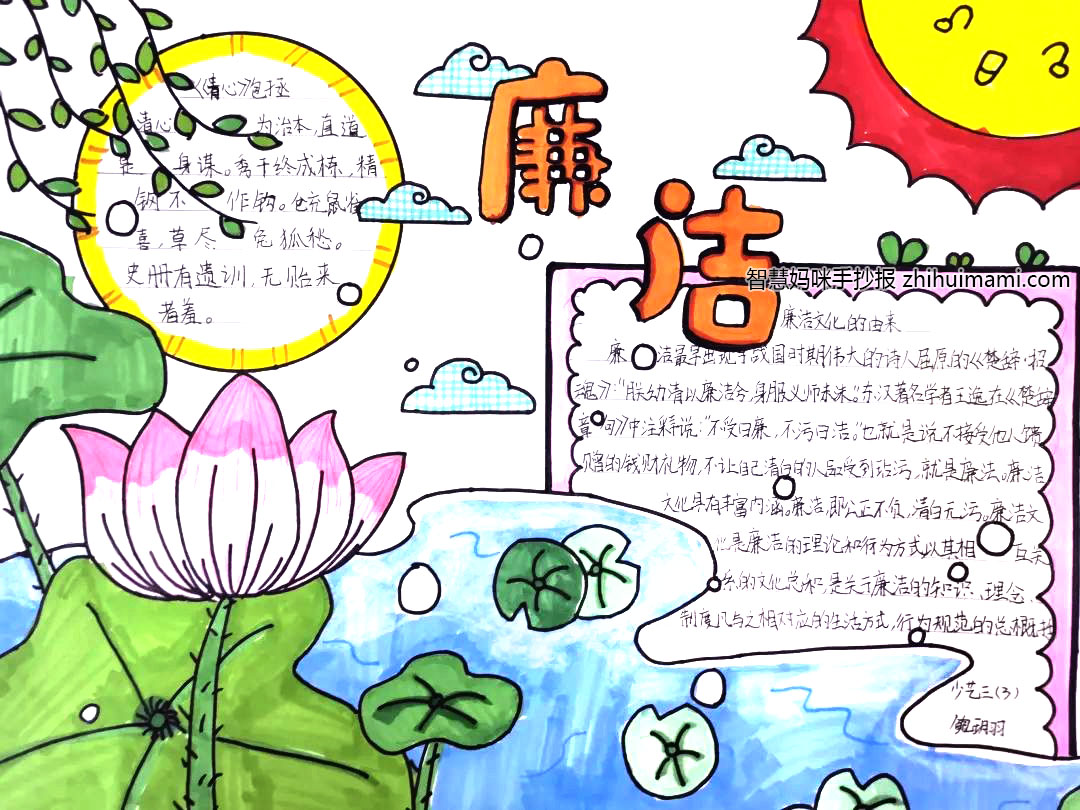 《清心》包拯
清心 为治本,直道
是 身谋。秀干终成栋,精
钢不 作钩。仓充鼠雀
喜,草尽 兔狐愁。
史册有遗训,无贻来
者羞。
廉
洁
智慧妈咪手抄报 zhihuimami.com
廉洁文化的由来
廉 洁最早出现于战国时期伟大的诗人屈原的《楚辞·招
魂》:“朕幼清以廉洁兮,身服义而未沫。”东汉著名学者王逸在《楚辞
章句》中注释说:“不受曰廉,不污曰洁。”也就是说不接受他人馈
赠的钱财礼物,不让自己清白的人品受到玷污,就是廉洁。廉洁
文化具有丰富内涵。廉洁,即公正不贪,清白无污。廉洁文
化是廉洁的理论和行为方式以其相 互关
系的文化总和,是关于廉洁的知识、理念、
制度及与之相对应的生活方式,行为规范的总概括
少艺三(3)
玥羽